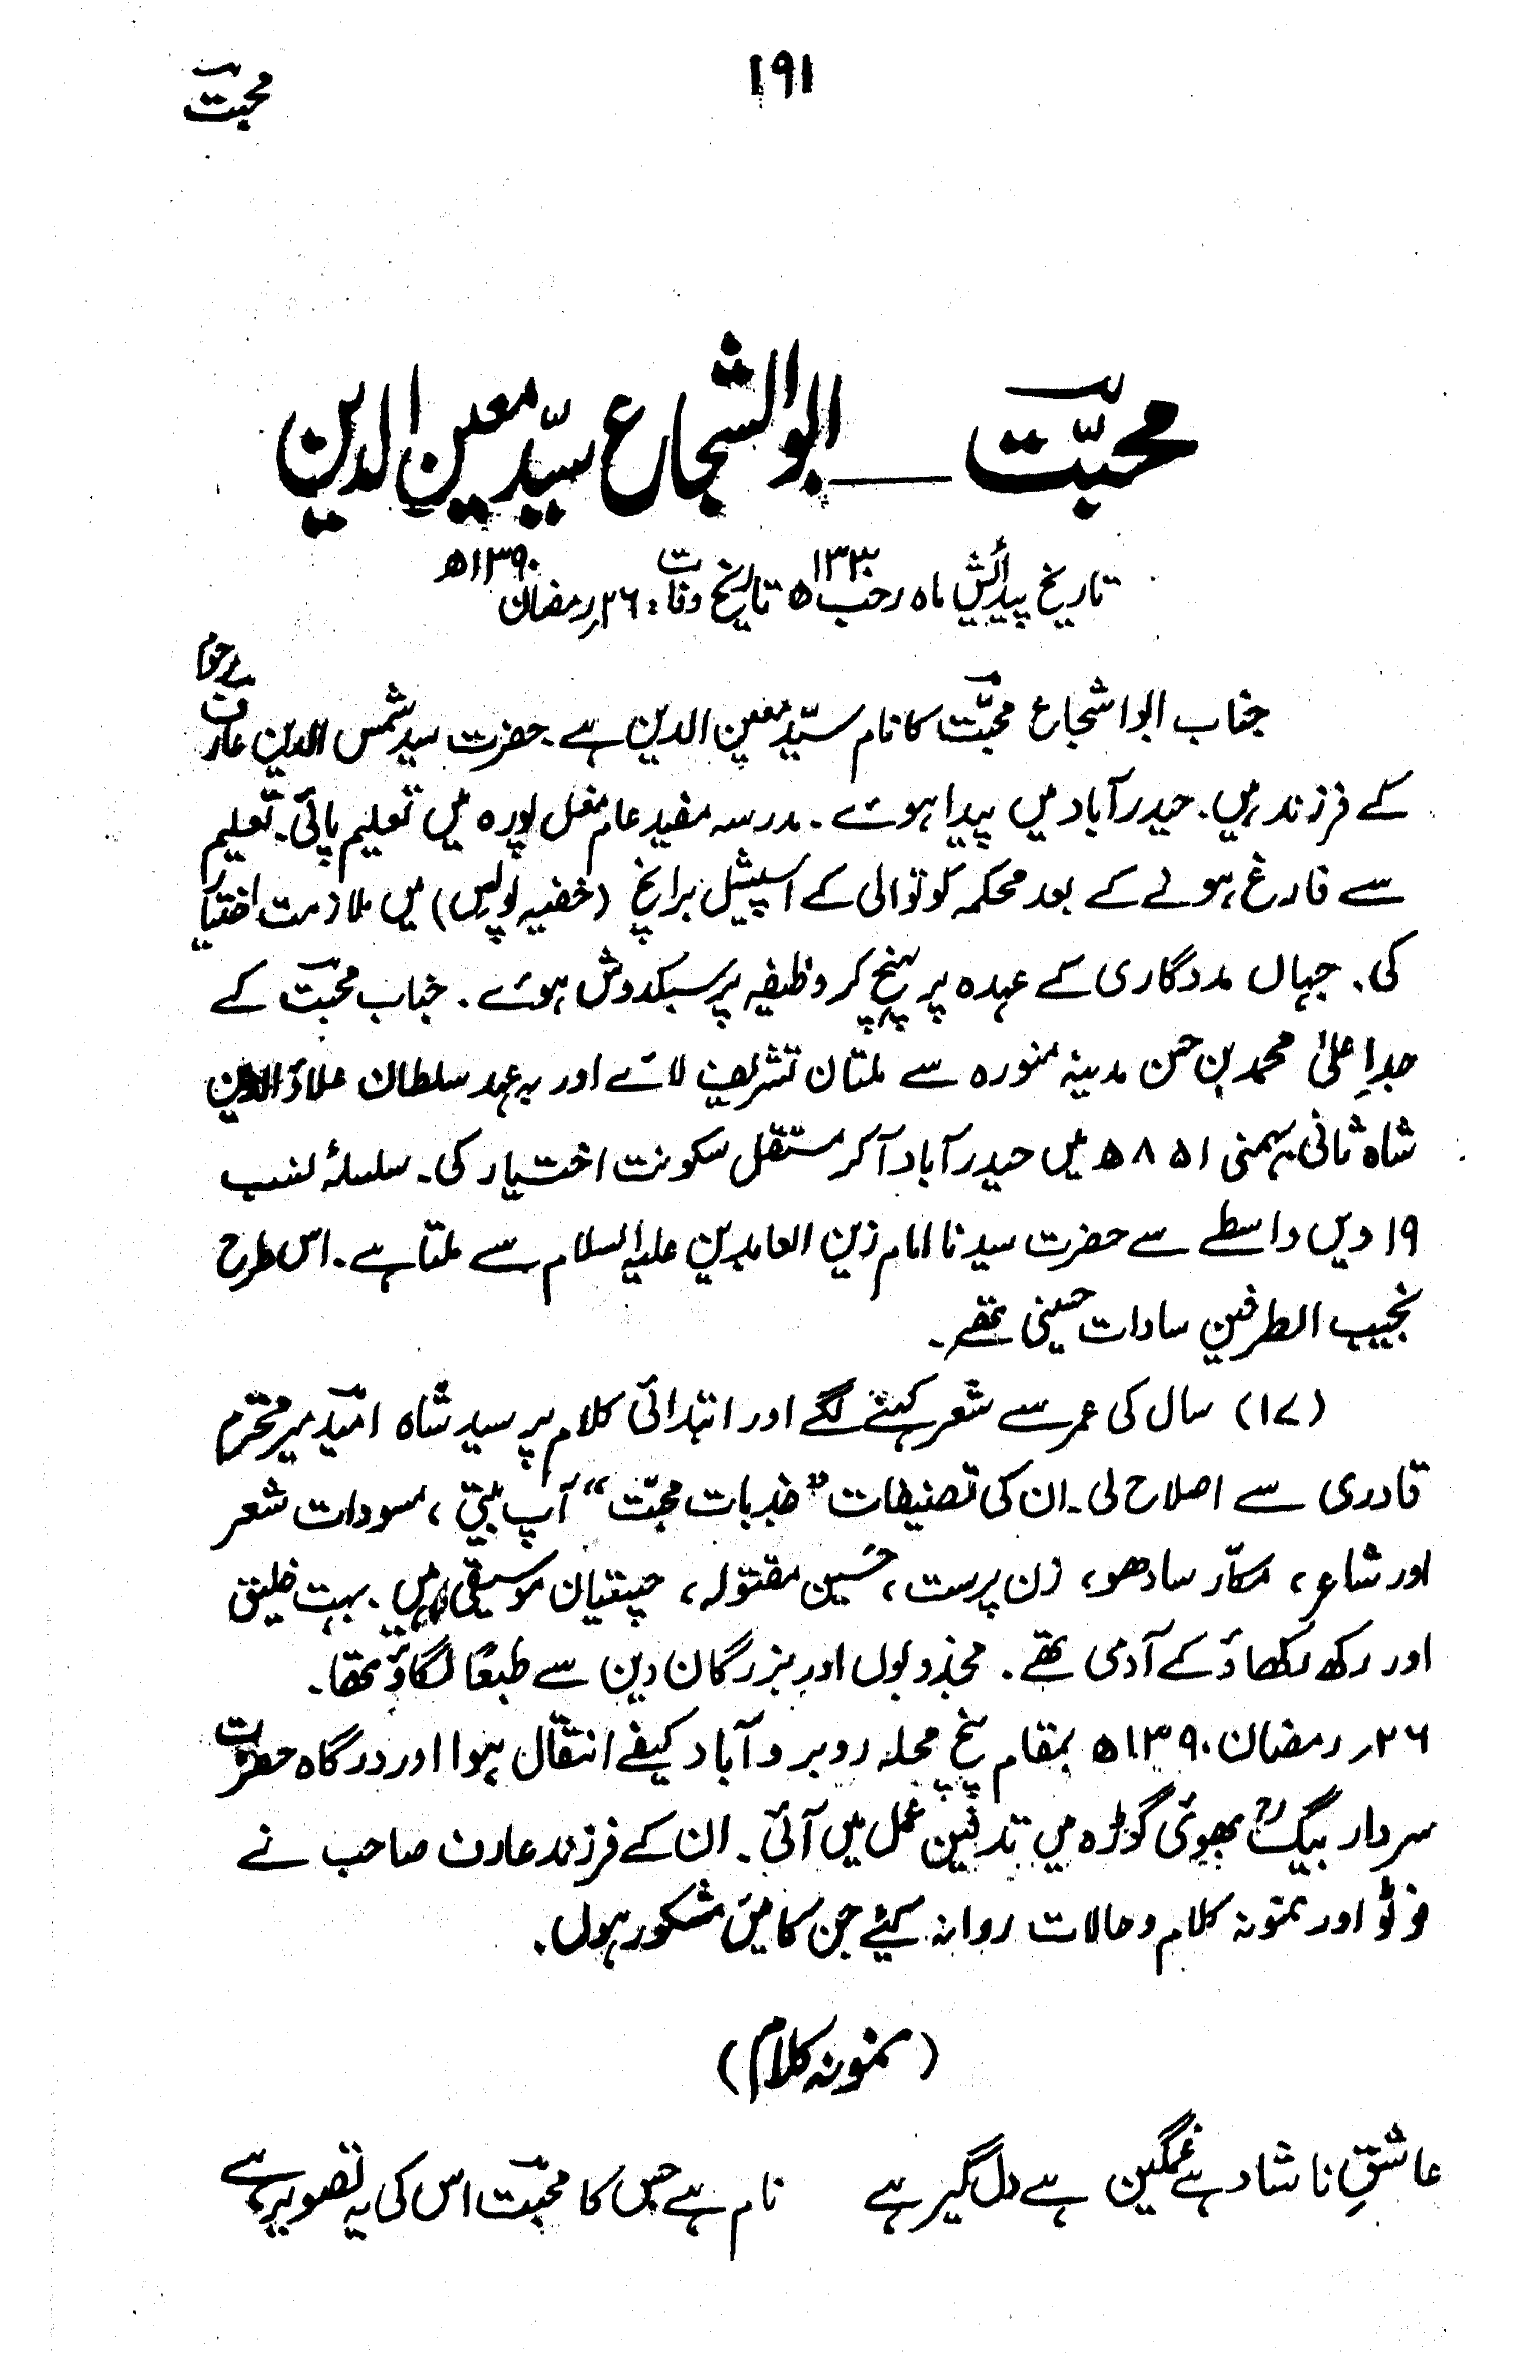 ۱۹۱
محبت
محبّت ــــ ابوالشجاع سیّد معین الدین
تاریخ پیدائش ماہ رجب ۱۳۳۰ھ تاریخ وفات: ۲۶؍رمضان ۱۳۹۰ھ
جناب ابوا شجاع محبّت کا نام سیّد معین الدین ہے۔ حضرت سید شمس الدین عارف مرحوم
کے فرزند ہیں۔ حیدرآباد میں پیدا ہوئے۔ مدرسہ مفید عام مغل پورہ میں تعلیم پائی۔ تعلیم
سے فارغ ہونے کے بعد محکمہ کوتوالی کے اسپیشل برانچ (خفیہ پولیس) میں ملازمت اختیار
کی۔ جہاں مددگاری کے عہدہ پر پہنچ کر وظیفہ پر سبکدوش ہوئے۔ جناب محبت کے
جدِاعلیٰ محمد بن حسن مدینہ منورہ سے ملتان تشریف لائے اور بہ عہد سلطان علاؤالدین
شاہ ثانی بہمنی ۸۵۱ھ میں حیدرآباد آکر مستقل سکونت اختیار کی۔ سلسلۂ نسب
۱۹ ویں واسطے سے حضرت سیدنا امام زین العابدین علیہ السلام سے ملتا ہے۔ اس طرح
نجیب الطرفین سادات حسینی تھے۔
(۱۷) سال کی عمر سے شعر کہنے لگے اور ابتدائی کلام پر سید شاہ امّید میر محترم
قادری سے اصلاح لی۔ ان کی تصنیفات "جذبات محبّت" آپ بیتی، مسودات شعر
اور شاعر، مکّار سادھو، زن پرست، حَسین مقتولہ، چپقیان موسیقی ہیں۔ بہت خلیق
اور رکھ رکھاؤ کے آدمی تھے۔ مجذوبوں اور بزرگان دین سے طبعًا لگاؤ تھا۔
۲۶؍ رمضان ۱۳۹۰ھ بمقام پنج محلہ روبرو آباد کیفے انتقال ہوا اور درگاہ حضرت
سردار بیگؒ بھوئی گوڑہ میں تدفین عمل میں آئی۔ ان کے فرزند عارف صاحب نے
فوٹو اور نمونہ کلام و حالات روانہ کیئے جن کا میں مشکور ہوں۔
(نمونہ کلام)
عاشقِ ناشاد ہے غمگین ہے دل گیر ہے نام ہے جس کا محبّت اس کی یہ تصویر ہے